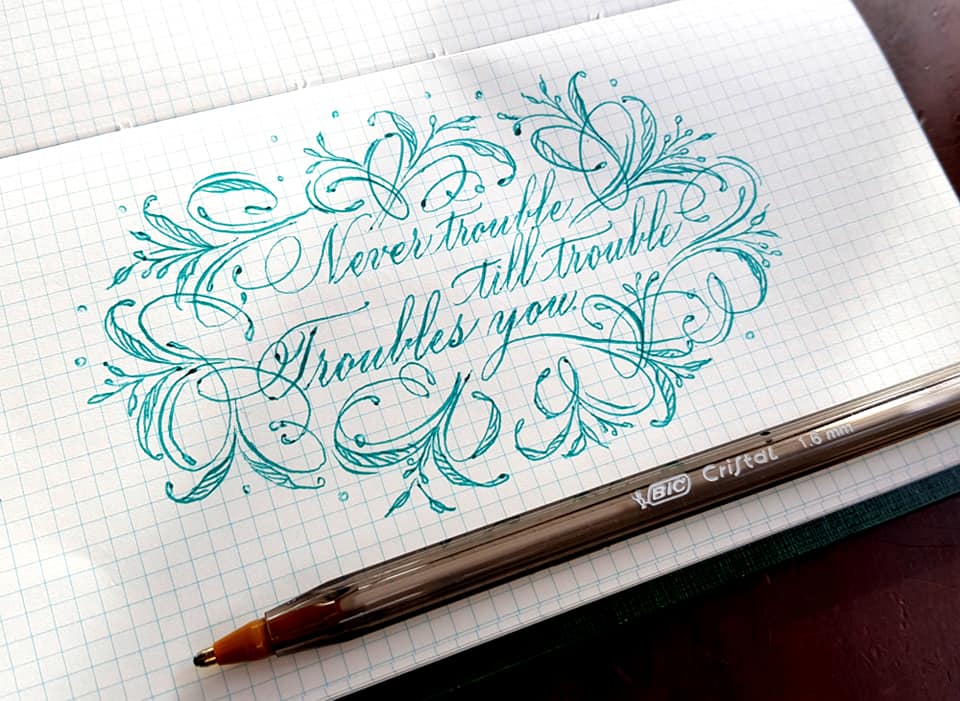 Never trouble
till trouble
Troubles you.
BIC Cristal 1.6 mm